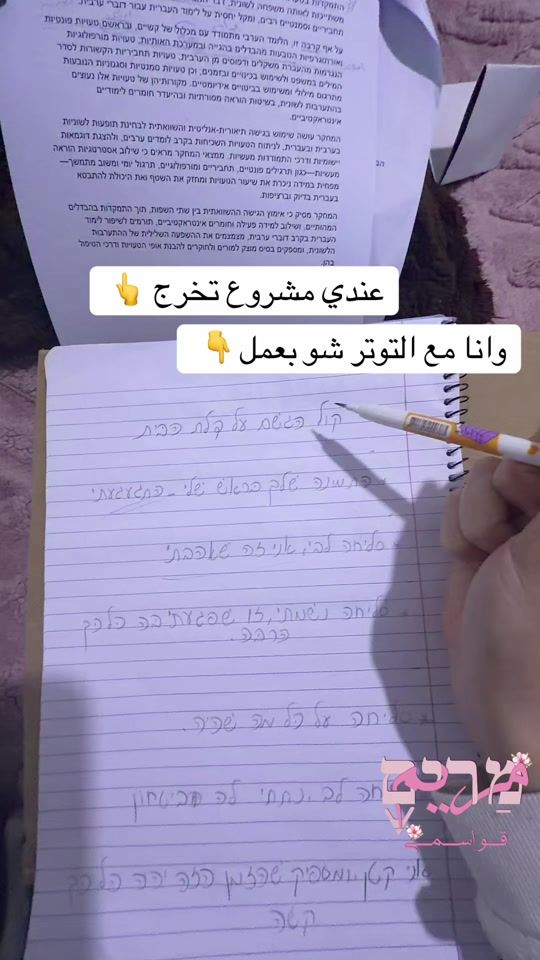 משתייכות לאותה משפחה לשונית, דבר
תחביריים וסמנטיים רבים, ומקל יחסית על לימוד העברית עבור דוברי ערבית.
על אף קרבה זו, הלומד הערבי מתמודד עם מכלול של קשיים, ובראשם טעויות פונטיות
ואורתוגרפיות הנובעות מהבדלים בהגייה ובמערכת האותיות; טעויות מורפולוגיות
הנגרמות מהעברת משקלים ודפוסים מן הערבית; טעויות תחביריות הקשורות לסדר
המילים במשפט ולשימוש בכינויים ובזמנים; וכן טעויות סמנטיות וסגנוניות הנובעות
מתרגום מילולי ומשימוש בביטויים אידיומטיים. מקורותיהן של טעויות אלו נעוצים
בהתערבות לשונית, בשיטות הוראה מסורתיות ובהיעדר חומרים לימודיים
אינטראקטיביים.
המחקר עושה שימוש בגישה תיאורית-אנליטית והשוואתית לבחינת תופעות לשוניות
בערבית ובעברית, לניתוח הטעויות השכיחות בקרב לומדים ערבים, ולהצגת דוגמאות
יישומיות ודרכי התמודדות מעשיות. ממצאי המחקר מראים כי שילוב אסטרטגיות הוראה
מעשיות—כגון תרגילים פונטיים, תחביריים ומורפולוגיים, תרגול יומי ומשוב מתמשך—
מפחית במידה ניכרת את שיעור הטעויות ומחזק את השטף ואת היכולת להתבטא
בעברית בדיוק וברציפות.
המחקר מסיק כי אימוץ הגישה ההשוואתית בין שתי השפות, תוך התמקדות בהבדלים
המהותיים, ושילוב למידה פעילה וחומרים אינטראקטיביים, תורמים לשיפור לימוד
העברית בקרב דוברי ערבית, מצמצמים את ההשפעה השלילית של ההתערבות
הלשונית, ומספקים בסיס מוצק למורים ולחוקרים להבנת אופי הטעויות ודרכי הטיפול
בהן.
عندي مشروع تخرج 👆
وانا مع التوتر شو بعمل 👇
קול הגשם על דלת הבית
התמונה שלך בראש שלי - התגעגעתי
סליחה לבי, אני זה שאהבתי
סליחה נשמתי, זו שפגעתי בה כל כך
הרבה.
סליחה על כל מה שהיה.
לב, נתתי לה ביטחון
אני קטן, ומספיק שהזמן הזה יהיה כל כך
קשה
מרים
قواسمي